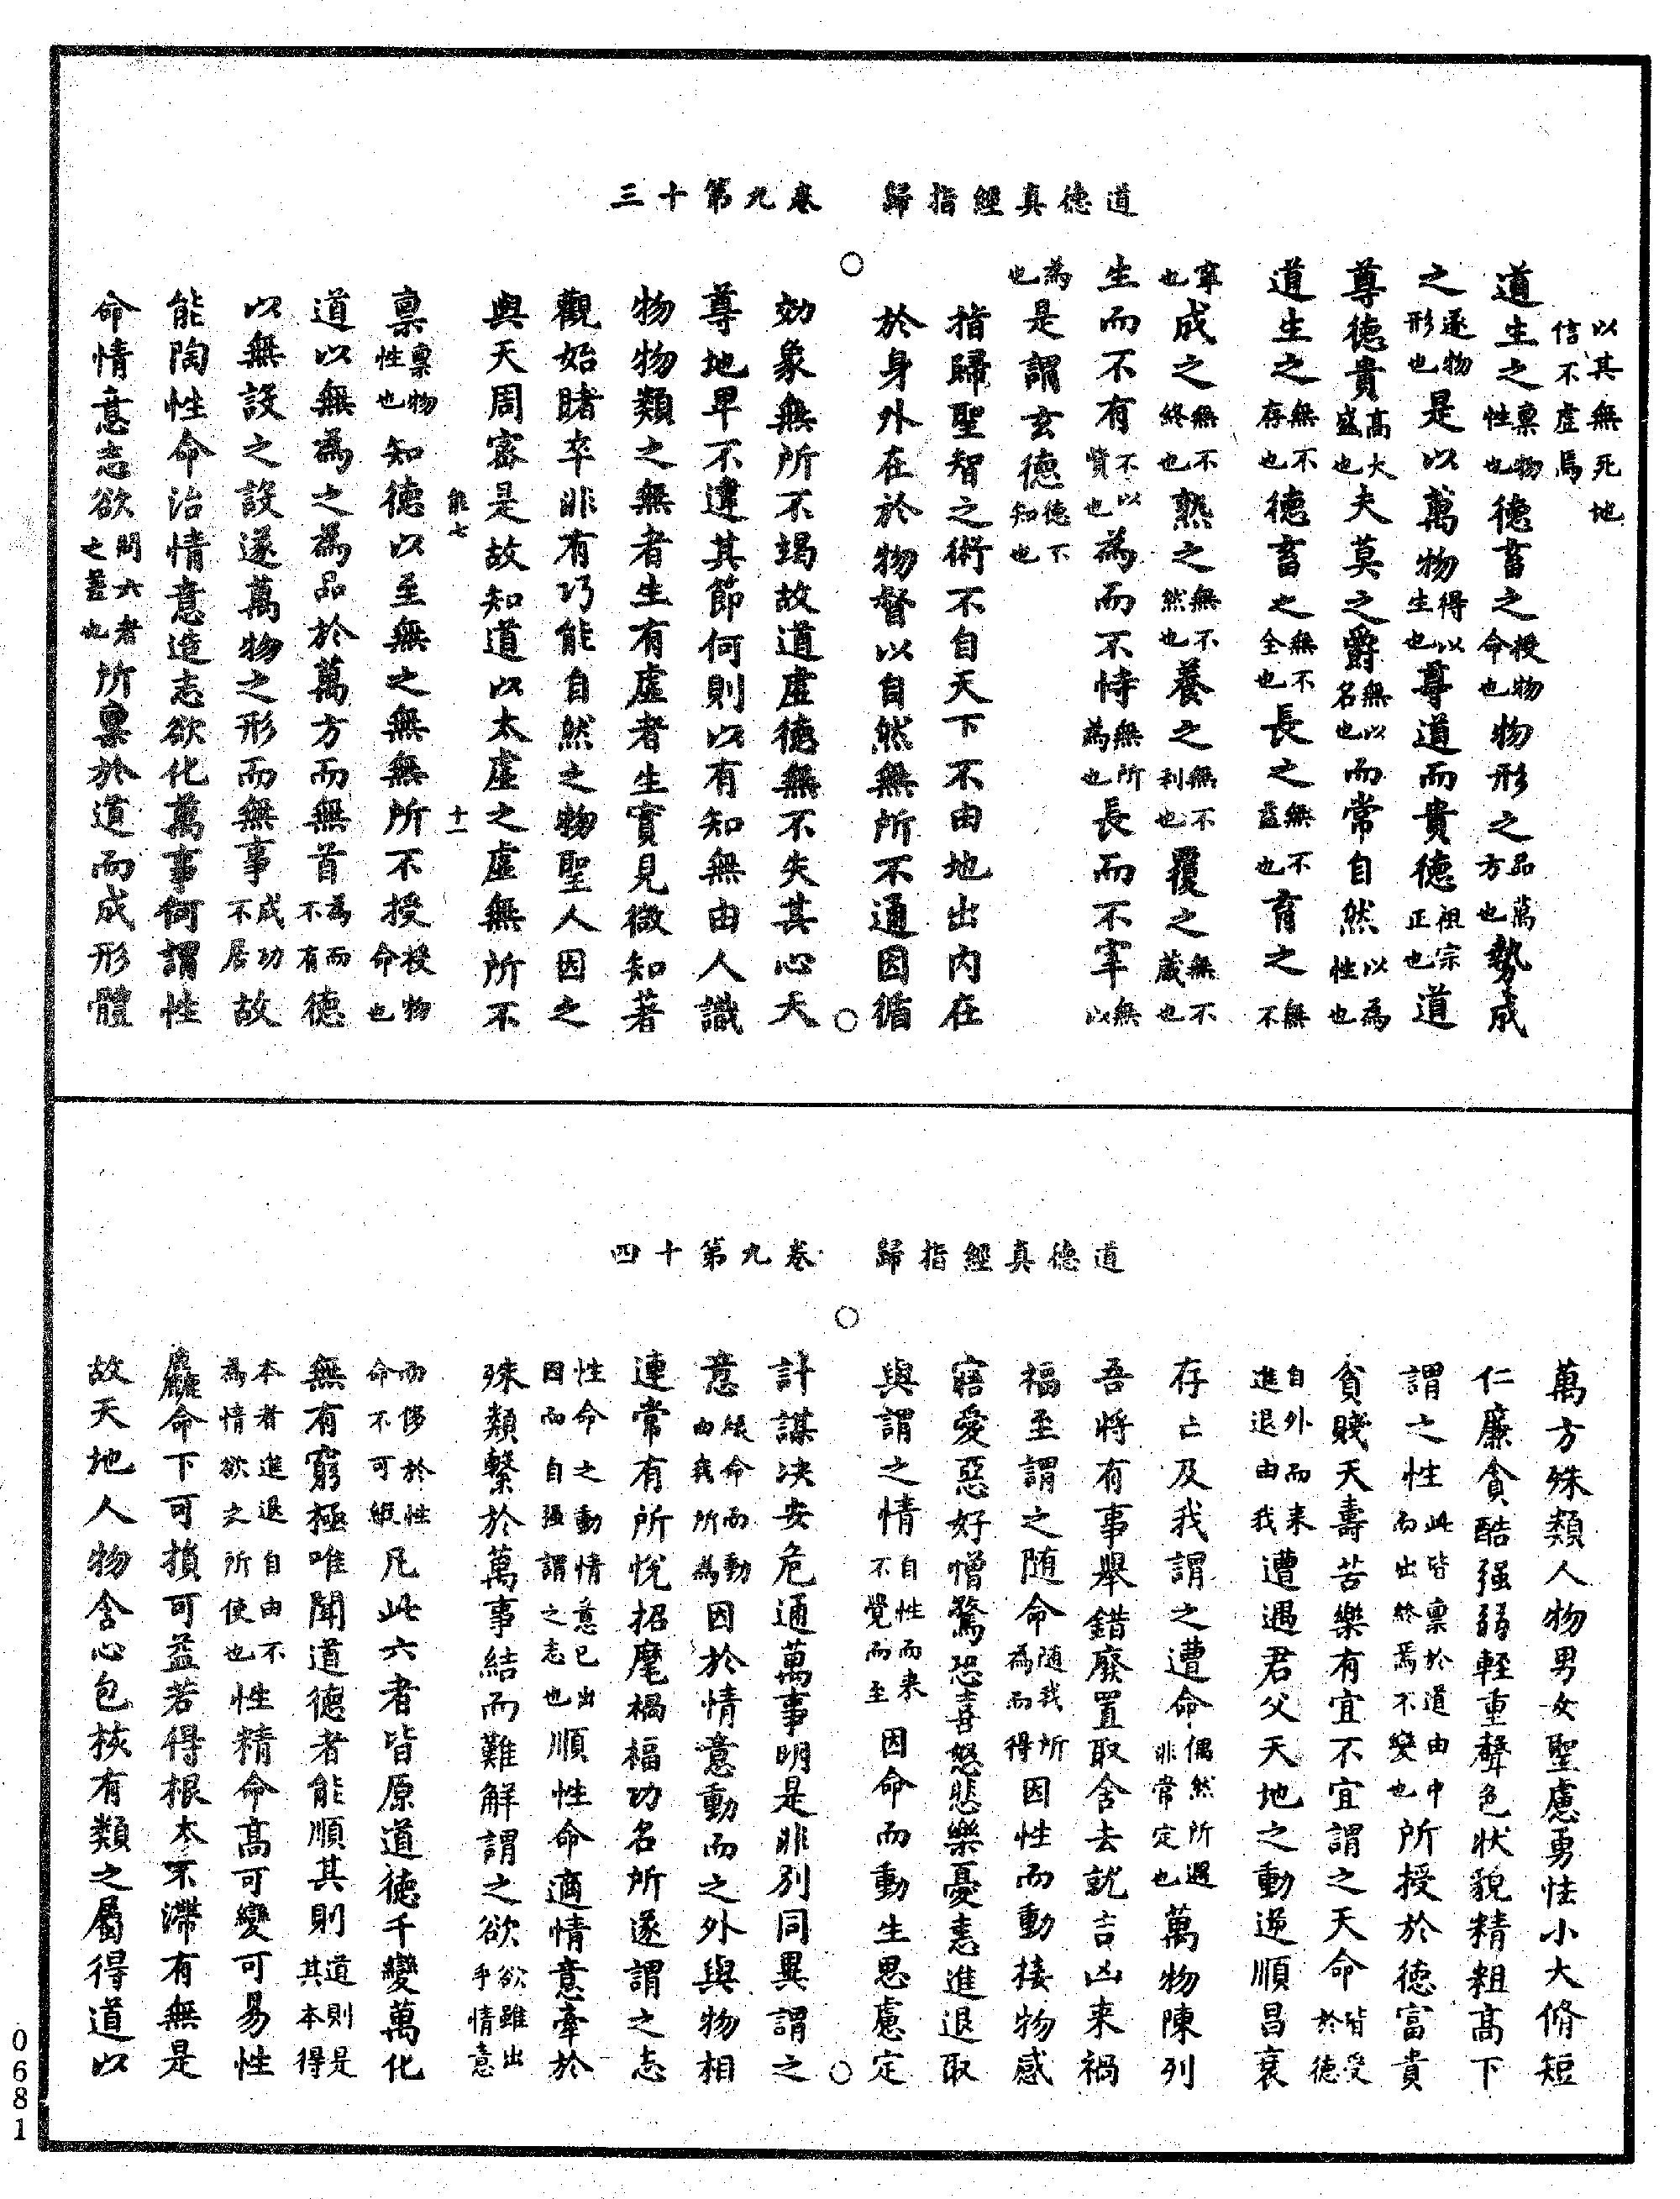 道德真經指歸　卷九第十三
以其無死地
信不虛焉
道生之稟物性也德畜之授物命也物形之品萬方也勢成
之遂物形也是以萬物得以生也尊道而貴德祖宗正也道
尊德貴高大盛也夫莫之爵無以名也而常自然以為性也
道生之無不存也德畜之無不全也長之無不益也育之無不
宰也成之無不終也熟之無不然也養之無不利也覆之無不蔵也
生而不有不以貨也為而不恃無所為也長而不宰無以
為也是謂玄德德不知也
指歸聖智之術不自天下不由地出內在
於身外在於物督以自然無所不通因循
効象無所不竭故道虛德無不失其心天
尊地卑不違其節何則以有知無由人識
物物類之無者生有虛者生實見微知著
觀始睹卒非有巧能自然之物聖人因之
與天周密是故知道以太虛之虛無所不
能七　十一
稟稟物性也知德以至無之無無所不授授物命也
道以無為之為品於萬方而無首為而不有德
以無設之設遂萬物之形而無事成功不居故
能陶性命治情意造志欲化萬事何謂性
命情意志欲問六者之蓋也所稟於道而成形體
道德真經指歸　卷九第十四
萬方殊類人物男女聖慮勇怯小大脩短
仁廉貪酷强弱輕重聲色狀貌精粗高下
謂之性此皆稟於道由中而出終焉不變也所授於德富貴
貧賤夭壽苦樂有宜不宜謂之天命皆受於德
自外而来進退由我遭遇君父天地之動逆順昌衰
存亡及我謂之遭命偶然所遇非常定也萬物陳列
吾將有事舉錯廢置取舍去就吉凶来禍
福至謂之随命随我所為而得因性而動接物感
寤愛惡好憎驚恐喜怒悲樂憂恚進退取
與謂之情自性而来不覺而至因命而動生思慮定
計謀决安危通萬事明是非別同異謂之
意緣命而動由我所為因於情意動而之外與物相
連常有所悅招麾禍福功名所遂謂之志
性命之動情意已出因而自强謂之志也順性命適情意牽於
殊類繫於萬事結而難解謂之欲欲雖出乎情意
而侈於性命不可緩凡此六者皆原道德千變萬化
無有窮極唯聞道德者能順其則道則是其本得
本者進退自由不為情欲之所使也性精命高可變可易性
麤命下可損可益若得根本不滯有無是
故天地人物含心包核有類之屬得道以
0681